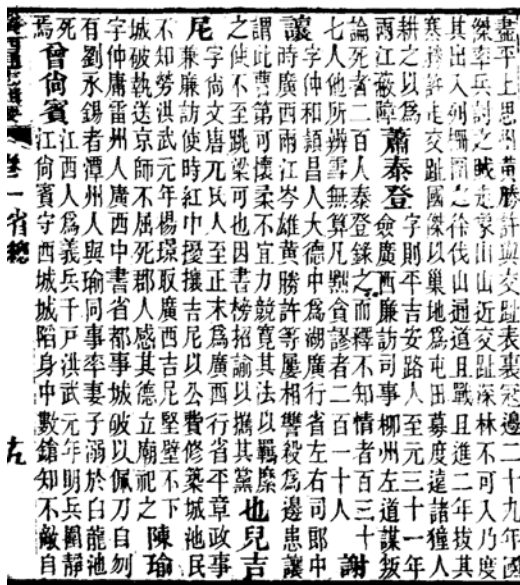 盡平上思州黃勝許與交趾表裏寇邊二十九年國
傑率兵討之賊走象山山近交趾深林不可入乃度
其出入列柵圍之徐伐山通道且戰且進二年拔其
寨勝許走交趾國傑以巢地爲屯田募度遠諸獞人
耕之以爲
兩江蔽障
蕭泰登
字則平吉安路人至元三十一年
僉廣西廉訪司事柳州左道謀叛
論死者二百人泰登錄之而釋不知情者百三十
七人他所辨雪無算凡黜貪謬者二百一十人
謝
讓
字仲和潁昌人大德中爲湖廣行省左右司郎中
時廣西兩江岑雄黃勝許等屢相讐殺爲邊患讓
謂此曹第可懷柔不宜力競寬其法以羈縻
之使不至跳梁可也因書榜招諭以攜其黨
也兒吉
尾
字尚文唐兀氏人至正末爲廣西行省平章政事
兼廉訪使時紅巾擾攘吉尼以公費修築城池民
不知勞洪武元年楊璟取廣西吉尼堅壁不下
城破執送京師不屈死郡人感其德立廟祀之
陳瑜
字仲庸雷州人廣西中書省都事城破以佩刀自刎
有劉永錫者潭州人與瑜同事率妻子溺於白龍池
死
焉
曾尚賓
江西人爲義兵千戶洪武元年明兵圍靜
江尚賓守西城城陷身中數鎗知不敵自
卷一省總